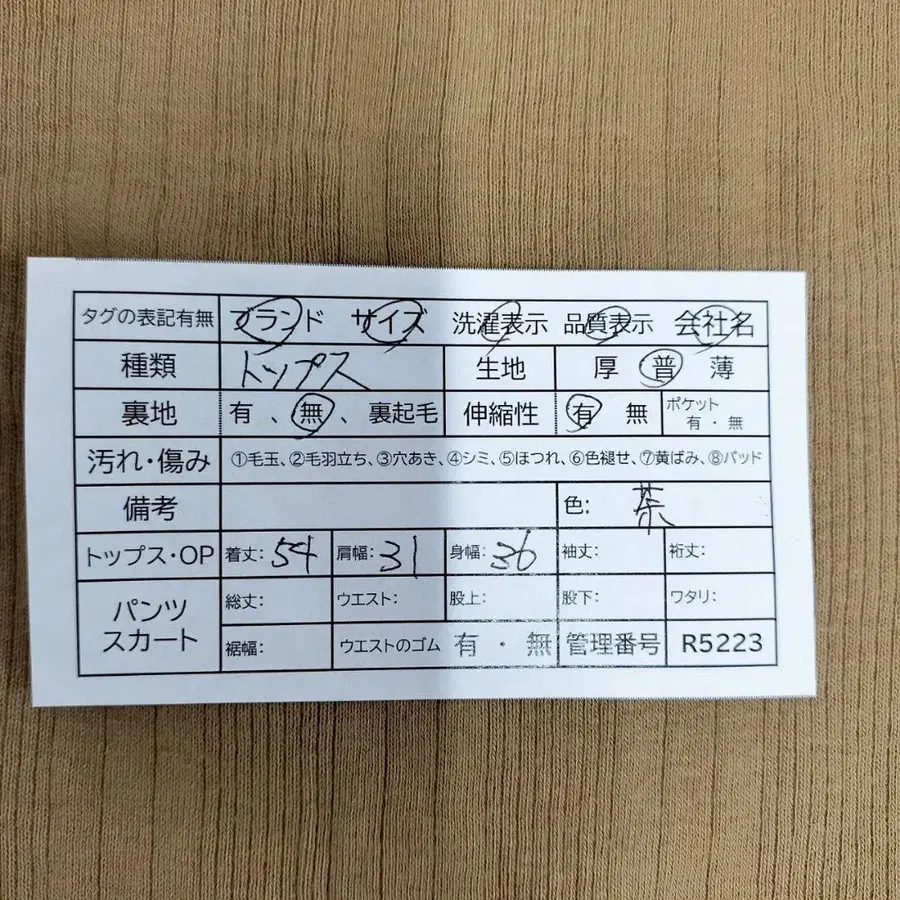 タグの表記有無 ブランド サイズ 洗濯表示 品質表示 会社名
種類 トップス 生地 厚 普 薄
裏地 有、無、裏起毛 伸縮性 有 無 ポケット 有・無
汚れ・傷み ①毛玉、②毛羽立ち、③穴あき、④シミ、⑤ほつれ、⑥色褪せ、⑦黄ばみ、⑧パッド
備考 色: 茶
トップス・OP 着丈: 54 肩幅: 31 身幅: 36 袖丈: 裄丈:
パンツ スカート 総丈: ウエスト: 股上: 股下: ワタリ:
裾幅: ウエストのゴム 有・無 管理番号 R5223